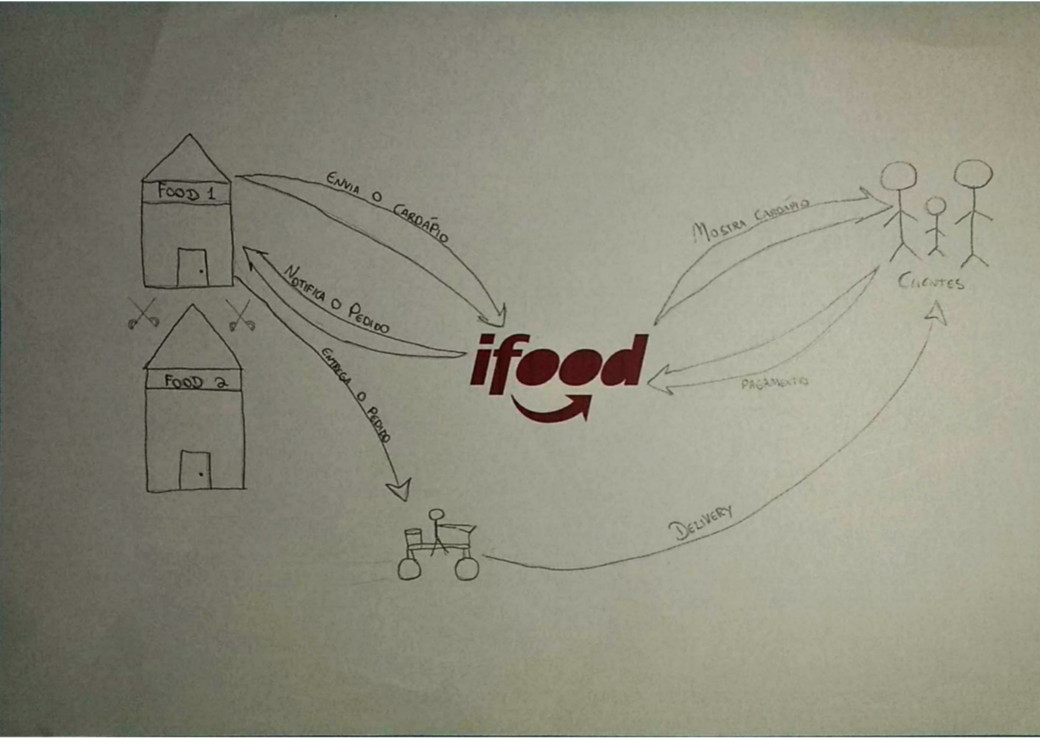 FOOD 1
ENVIA O CARDÁPIO
NOTIFICA O PEDIDO
ENTREGA O PEDIDO
FOOD 2
ifood
MOSTRA CARDÁPIO
CLIENTES
PAGAMENTO
DELIVERY